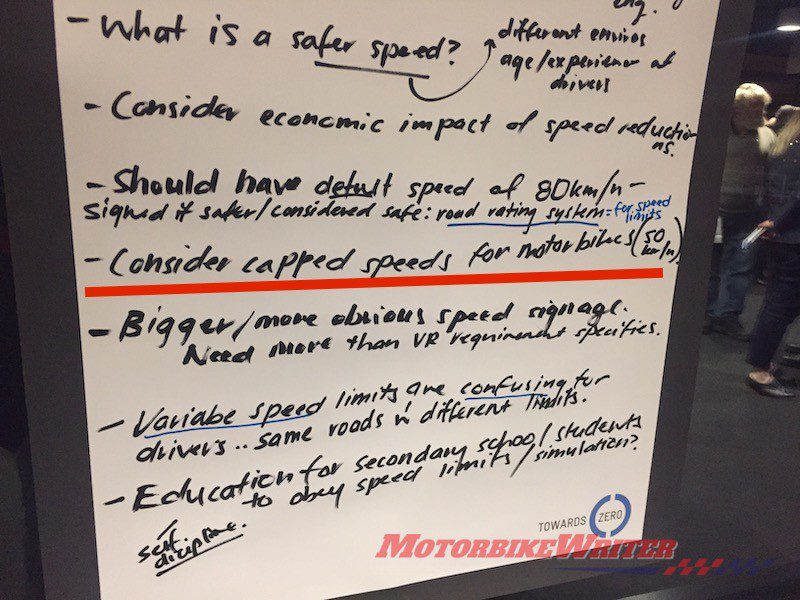 eng.
- What is a safer speed?
different enviros
age/experience of
drivers
- Consider economic impact of speed reductio
ns.
- Should have default speed of 80km/h -
signed if safer/considered safe: road rating system = for speed
limits
- Consider capped speeds for motorbikes (50
km/h)
- Bigger/more obvious speed signage.
Need more than VR requirement specifies.
- Variabe speed limits are confusing for
drivers.. same roads in different limits.
- Education for secondary school/students
to obey speed limits/simulation?
self
dicipline.
TOWARDS ZERO
MOTORBIKEWRITER